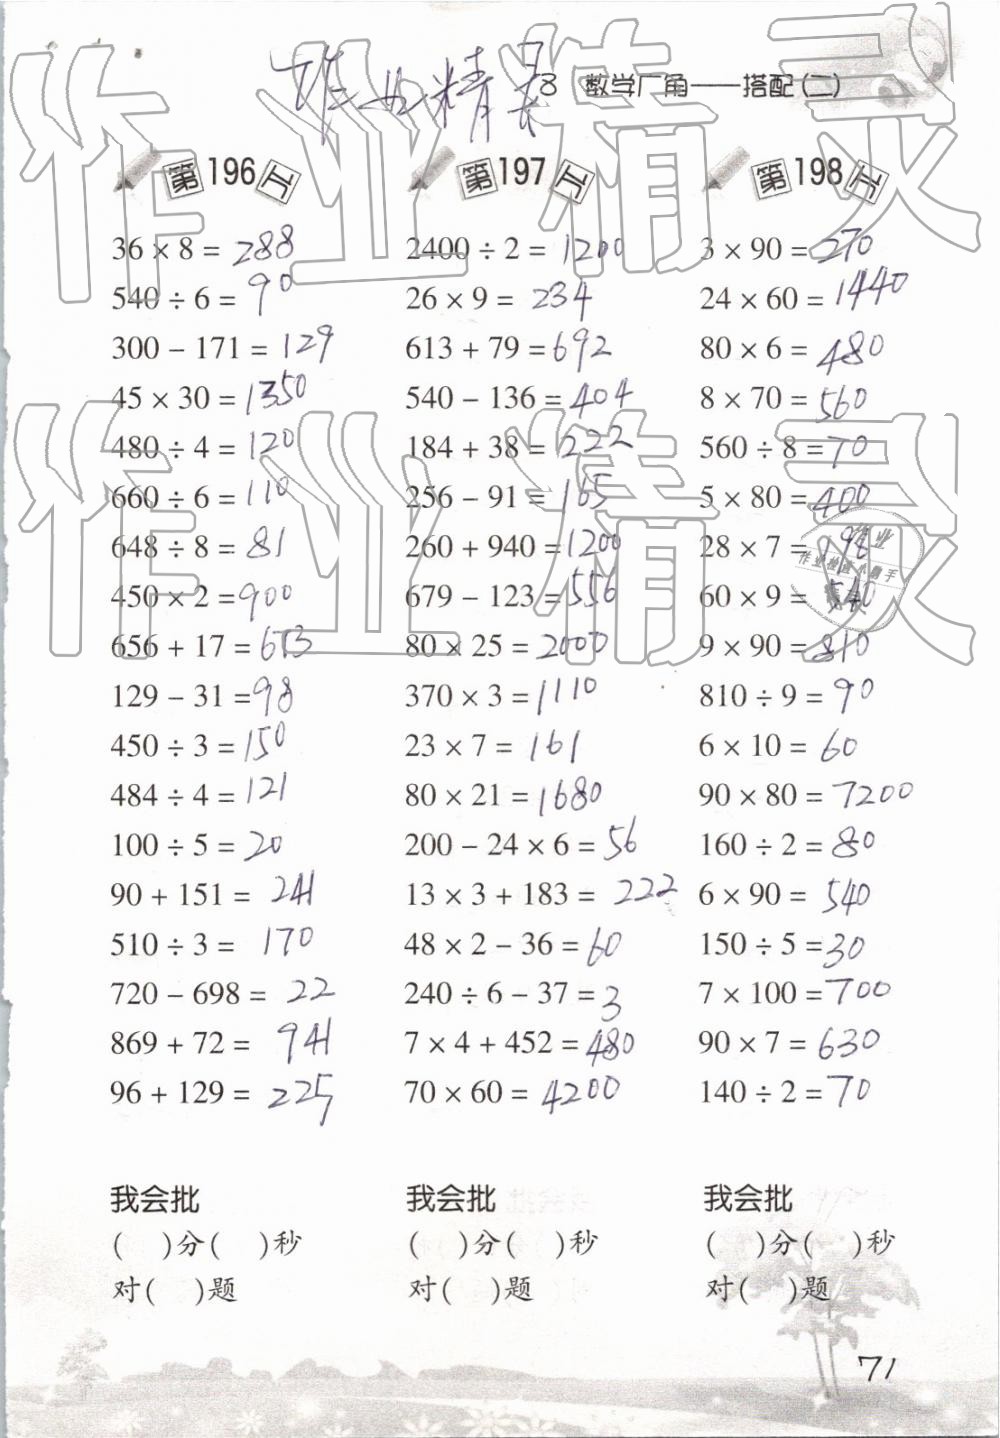 8 数学广角——搭配(二)
作业精灵
第196天
36 × 8 = 288
540 ÷ 6 = 90
300 − 171 = 129
45 × 30 = 1350
480 ÷ 4 = 120
660 ÷ 6 = 110
648 ÷ 8 = 81
450 × 2 = 900
656 + 17 = 673
129 − 31 = 98
450 ÷ 3 = 150
484 ÷ 4 = 121
100 ÷ 5 = 20
90 + 151 = 241
510 ÷ 3 = 170
720 − 698 = 22
869 + 72 = 941
96 + 129 = 225
我会批
( )分( )秒
对( )题
第197天
2400 ÷ 2 = 1200
26 × 9 = 234
613 + 79 = 692
540 − 136 = 404
184 + 38 = 222
256 − 91 = 165
260 + 940 = 1200
679 − 123 = 556
80 × 25 = 2000
370 × 3 = 1110
23 × 7 = 161
80 × 21 = 1680
200 − 24 × 6 = 56
13 × 3 + 183 = 222
48 × 2 − 36 = 60
240 ÷ 6 − 37 = 3
7 × 4 + 452 = 480
70 × 60 = 4200
我会批
( )分( )秒
对( )题
第198天
3 × 90 = 270
24 × 60 = 1440
80 × 6 = 480
8 × 70 = 560
560 ÷ 8 = 70
5 × 80 = 400
28 × 7 = 198
60 × 9 = 540
9 × 90 = 810
810 ÷ 9 = 90
6 × 10 = 60
90 × 80 = 7200
160 ÷ 2 = 80
6 × 90 = 540
150 ÷ 5 = 30
7 × 100 = 700
90 × 7 = 630
140 ÷ 2 = 70
我会批
( )分( )秒
对( )题
71
作业精灵
作业精灵